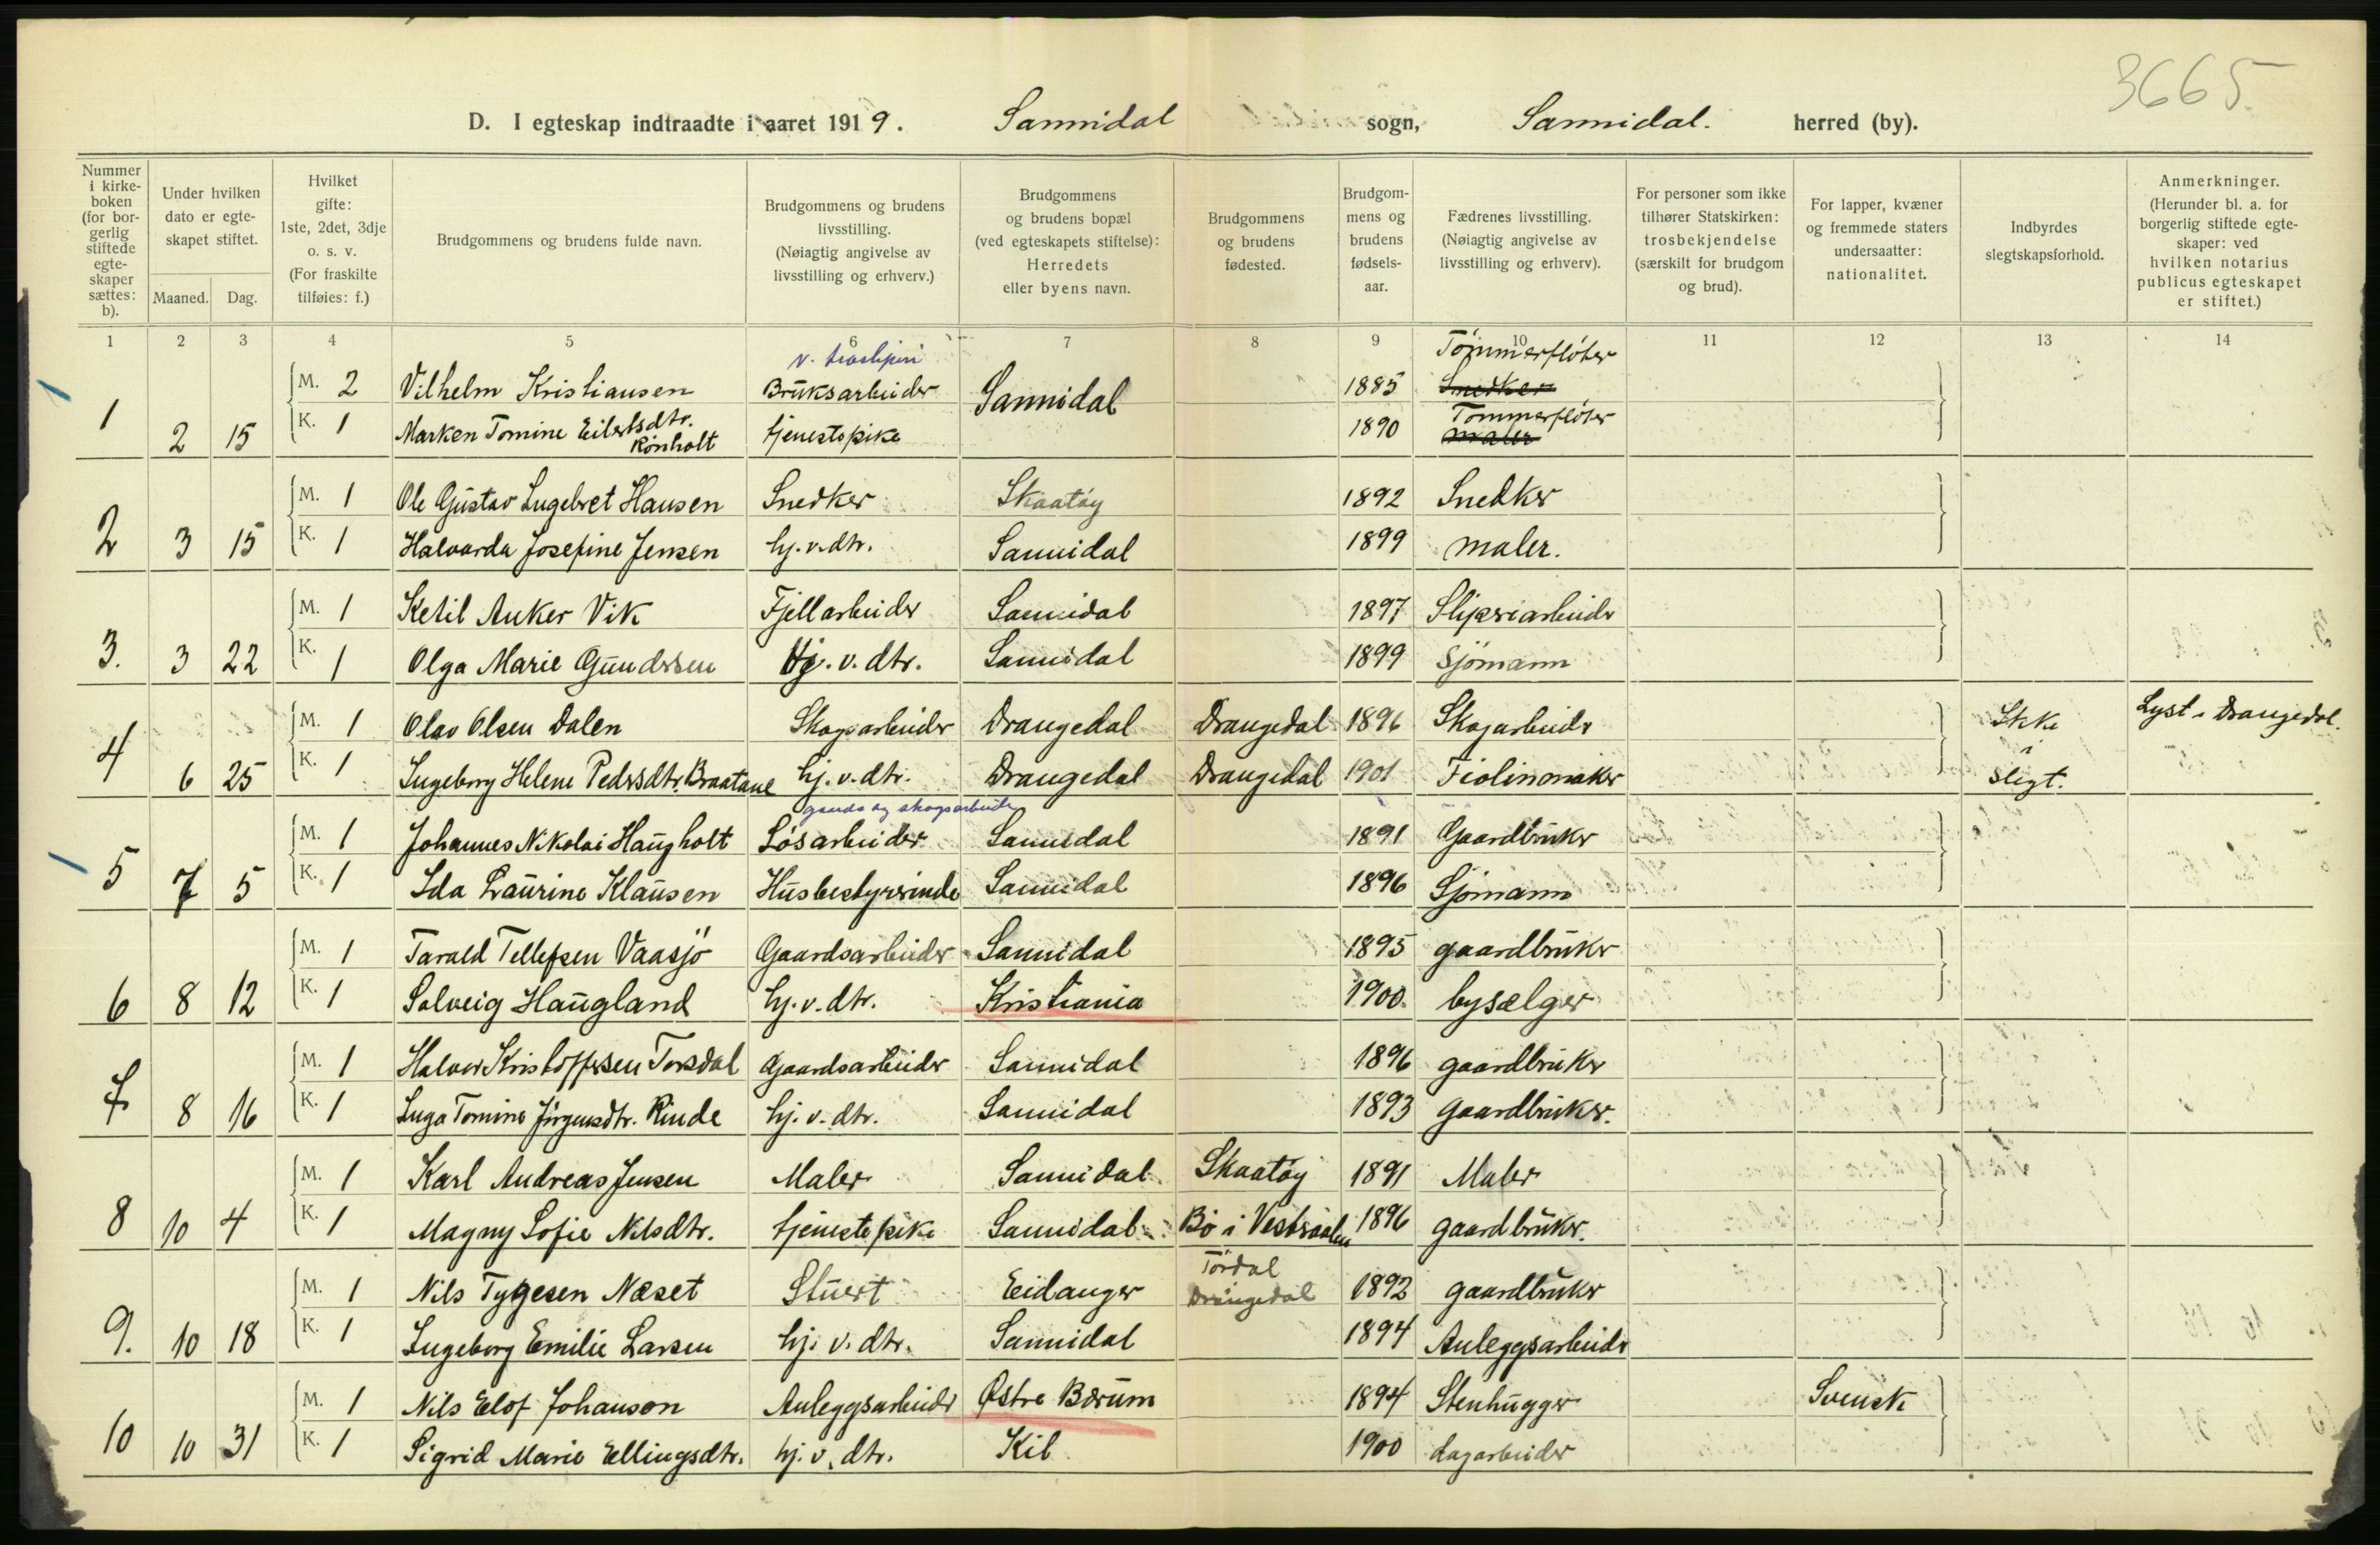 3665
D. I egteskap indtraadte i aaret 1919. Sannidal sogn, Sannidal. herred (by).
Nummer i kirke-boken (for bor-gerlig stiftede egte-skaper sættes: b).
Under hvilken dato er egte-skapet stiftet.
Maaned. Dag.
Hvilket gifte: 1ste, 2det, 3dje o. s. v. (For fraskilte tilføies: f.)
Brudgommens og brudens fulde navn.
Brudgommens og brudens livsstilling. (Nøiagtig angivelse av livsstilling og erhverv.)
Brudgommens og brudens bopæl (ved egteskapets stiftelse): Herredets eller byens navn.
Brudgommens og brudens fødested.
Brudgom-mens og brudens fødsels-aar.
Fædrenes livsstilling. (Nøiagtig angivelse av livsstilling og erhverv).
For personer som ikke tilhører Statskirken: trosbekjendelse (særskilt for brudgom og brud).
For lapper, kvæner og fremmede staters undersaatter: nationalitet.
Indbyrdes slegtskapsforhold.
Anmerkninger. (Herunder bl. a. for borgerlig stiftede egte-skaper: ved hvilken notarius publicus egteskapet er stiftet.)
1 2 3 4 5 6 7 8 9 10 11 12 13 14
v. træsliperi Tømmerfløter
M. 2 Vilhelm Kristiansen Bruksarbeider Sannidal 1885 Snedker
1 2 15 K. 1 Marken Tomine Eilertsdtr. Rønholt tjenestepike 1890 Tømmerfløter maler
M. 1 Ole Gustav Ingebret Hansen Snedker Skaatøy 1892 Snedker
2 3 15 K. 1 Halvarda Josefine Jensen hj. v. dtr. Sannidal 1899 maler.
M. 1 Ketil Anker Vik Fjellarbeider Sannidal 1897 Sliperiarbeider
3. 3 22 K. 1 Olga Marie Gundersen Hj. v. dtr. Sannidal 1899 Sjømann
M. 1 Olav Olsen Dalen Skogsarbeider Drangedal Drangedal 1896 Skogarbeider Ikke Lyst i Drangedal.
4 6 25 K. 1 Ingeborg Helene Pedersdtr. Braatane hj. v. dtr. Drangedal Drangedal 1901 Fiolinmaker i slegt.
gaards og skogsarbeider
M. 1 Johannes Nikolai Haugholt Løsarbeider Sannidal 1891 Gaardbruker
5 7 5 K. 1 Ida Laurine Klausen Husbestyrerinde Sannidal 1896 Sjømann
M. 1 Tarald Tellefsen Vaasjø Gaardsarbeider Sannidal 1895 gaardbruker
6 8 12 K. 1 Solveig Haugland hj. v. dtr. Kristiania 1900. bysælger
M. 1 Halvor Kristoffersen Torsdal Gaardsarbeider Sannidal 1896 gaardbruker
7 8 16 K. 1 Inga Tomine Jørgensdtr. Rinde hj. v. dtr. Sannidal 1893 Gaardbruker.
M. 1 Karl Andreas Jensen Maler Sannidal Skaatøy 1891 Maler
8 10 4 K. 1 Magny Sofie Nilsdtr. tjenestepike Sannidal Bø i Vesteraalen 1896 gaardbruker.
M. 1 Nils Tygesen Næset Stuert Eidanger Tørdal Drangedal 1892 gaardbruker
9. 10 18 K. 1 Ingeborg Emilie Larsen hj. v. dtr. Sannidal 1894 Anleggsarbeider
M. 1 Nils Elof Johanson Anleggsarbeider Østre Bærum 1894 Stenhugger Svensk
10 10 31 K. 1 Sigrid Marie Ellingsdtr. hj. v. dtr. Kil 1900 dagarbeider